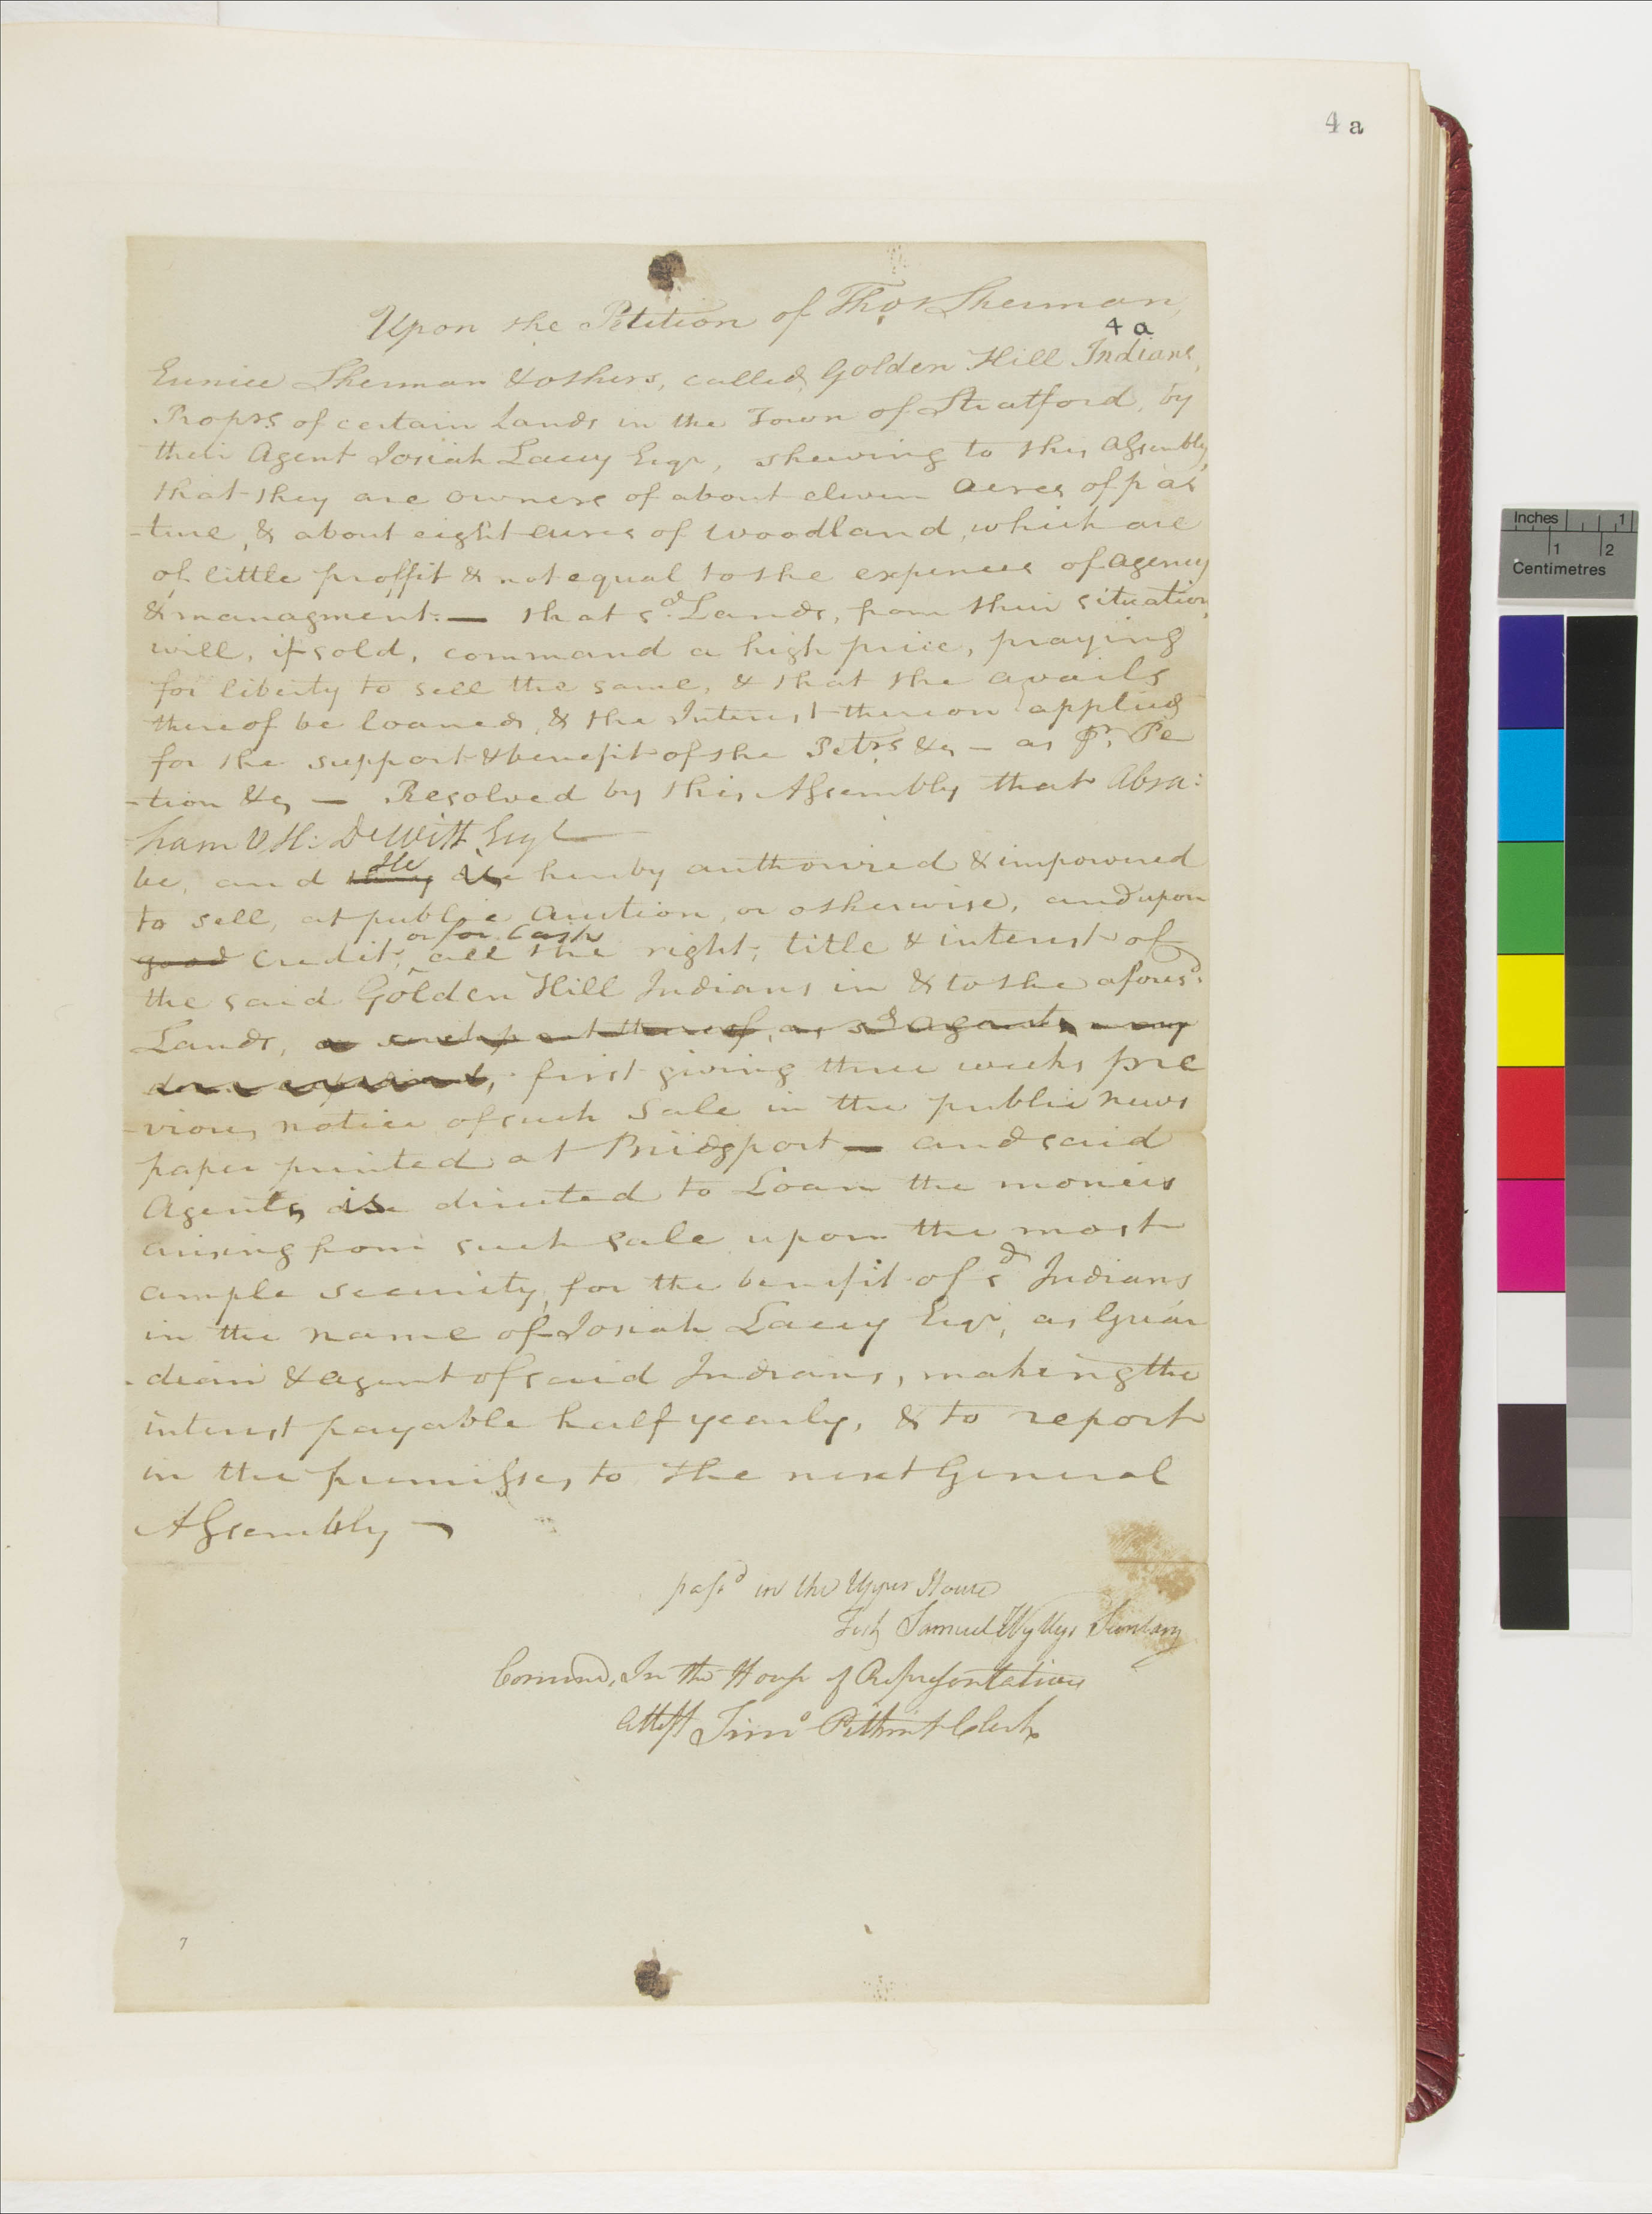 4 a
Upon the Petition of Thos Sherman,
4 a
Eunice Sherman & others, called Golden Hill Indians,
Proprs of certain Lands in the Town of Stratford, by
their Agent Josiah Lacey Esqr, shewing to this Assembly,
that they are owners of about eleven Acres of pas
-ture, & about eight acres of woodland, which are
of little proffit & not equal to the expences of agency
& managment:— that sd. Lands, from their situation,
will, if sold, command a high price, praying
for liberty to sell the same, & that the avails
thereof be loaned, & the Interest thereon applied
for the support & benefit of the Petrs. &c — as pr. Pe
-tion &c — Resolved by this Assembly that Abra:
ham V H: DeWitt Esqr
he
be, and they is hereby authorized & impowered
to sell, at public Auction, or otherwise, and upon
or for Cash
good Credit, all the right, title & interest of
the said Golden Hill Indians in & to the aforesd.
Lands, or such part thereof, as sd Agents may
first giving three weeks pre
-vious notice of such Sale in the public news
paper printed at Bridgport — and said
Agents is directed to Loan the monies
arising from such sale upon the most
ample security, for the benefit of sd Indians
in the name of Josiah Lacey Esqr, as Guar
-dian & agent of said Indians, making the
interest payable half yearly, & to report
in the premisses to the next General
Assembly —
passd in the Upper House
Test Samuel Wyllys Secretary
Concurrd, In the House of Representatives
Attest Timo Pitkin Clerk
7
Inches 1
1 2
Centimetres